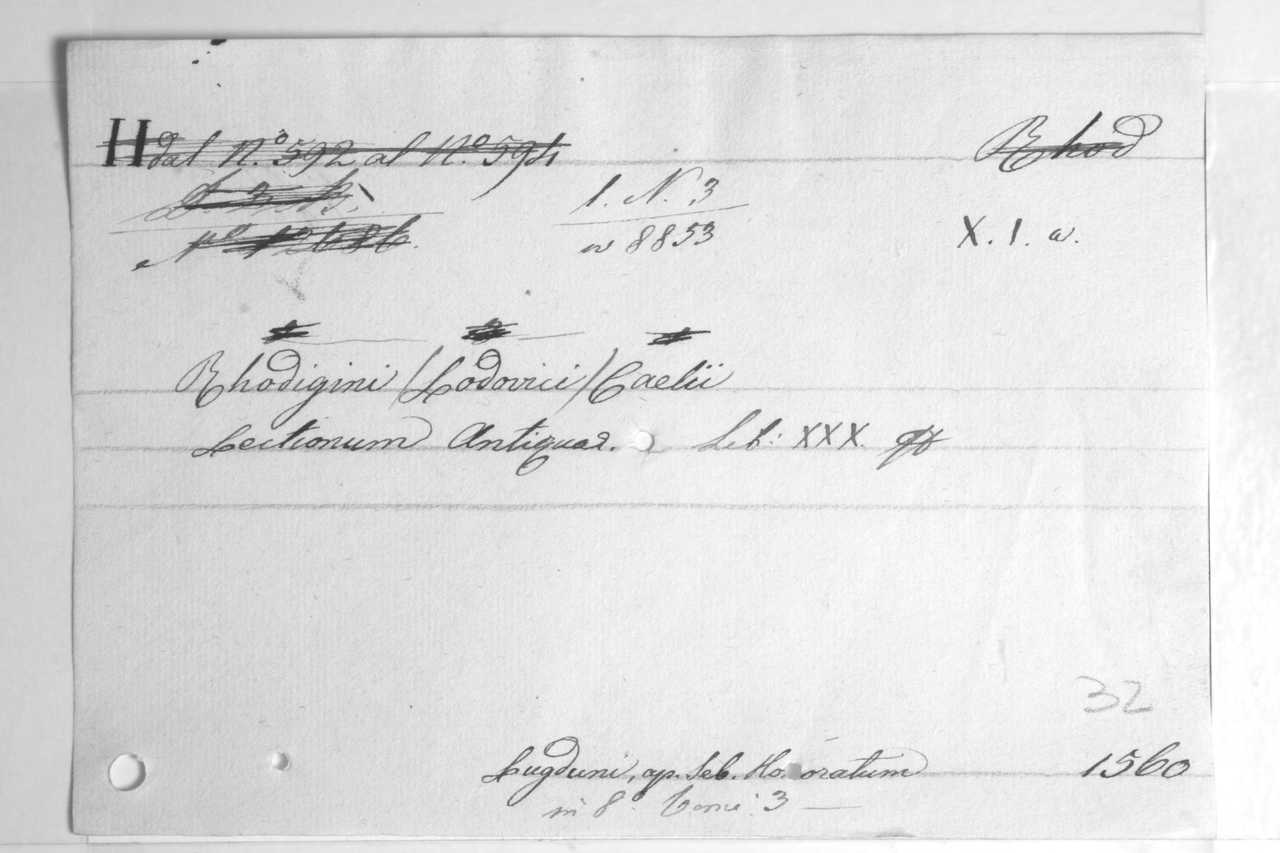 H dal N.º 592 al N.º 594 Rhod
1. N. 3
n 8853 X. 1. a.
Rhodigini (Lodovici) Caelii
Lectionum Antiquar. Lib: XXX.
32
Lugduni, ap. Seb. Honoratum 1560
in 8º. Tomi: 3